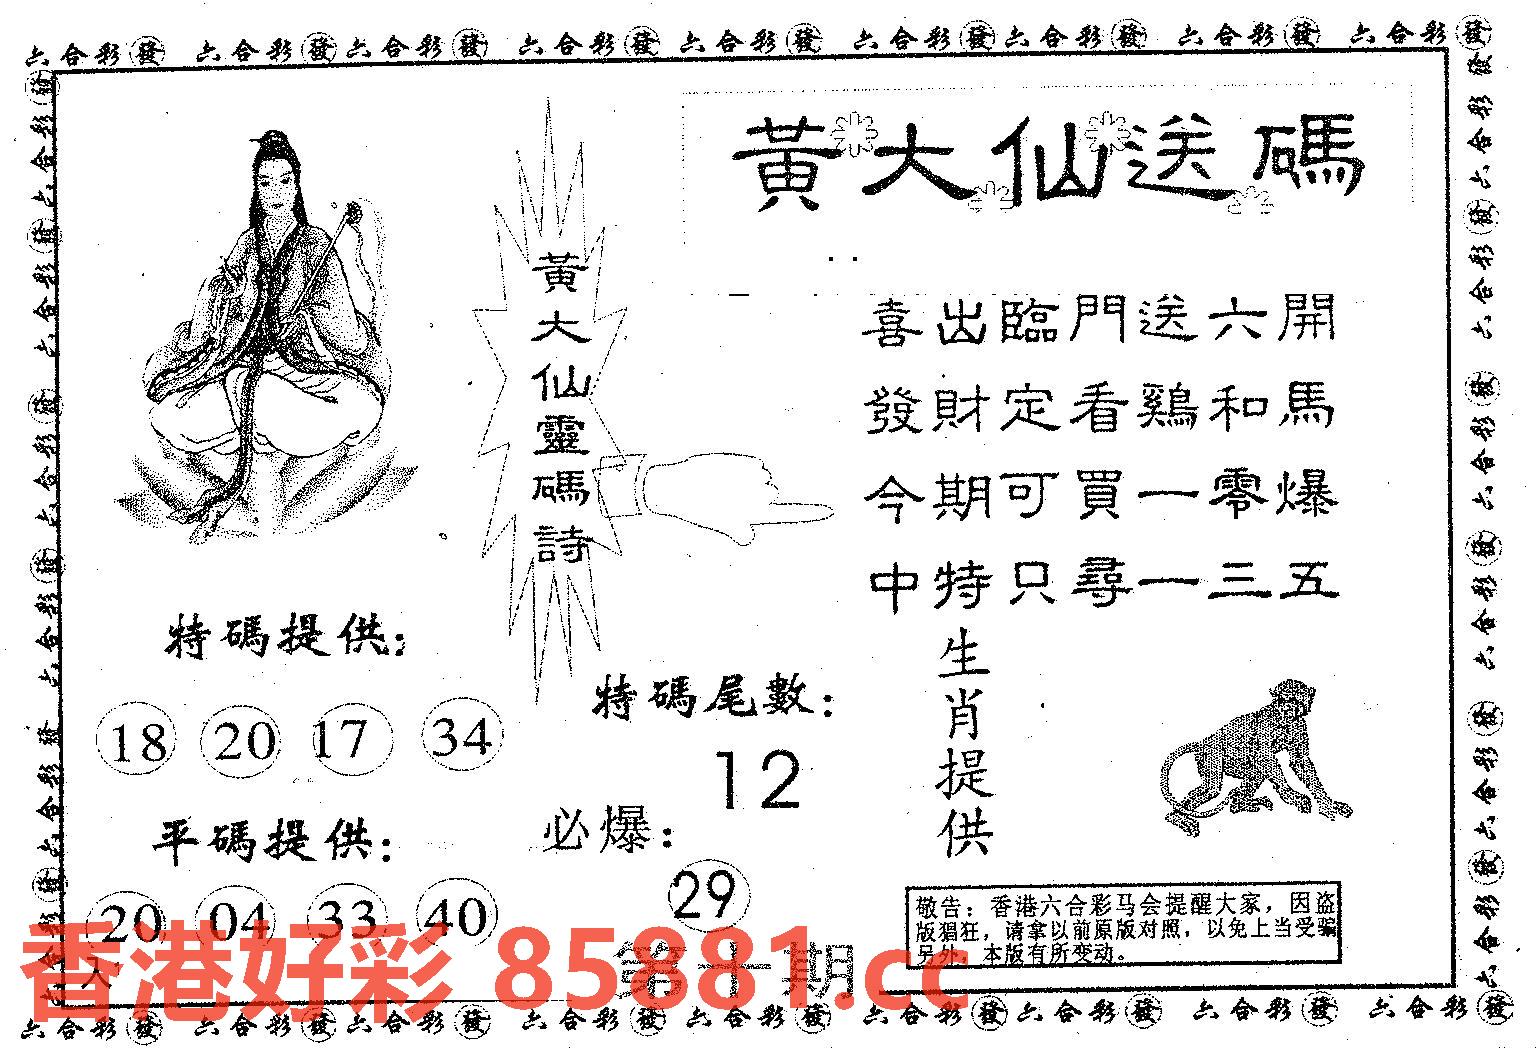 六合彩發 六合彩發 六合彩發 六合彩發 六合彩發 六合彩發 六合彩發 六合彩發 六合彩發
黃大仙送碼
黃大仙靈碼詩
喜出臨門送六開
發財定看鷄和馬
今期可買一零爆
中特只尋一三五
特碼提供：
18 20 17 34
特碼尾數：
12
平碼提供：
20 04 33 40
必爆：
29
生肖提供
第十期
敬告：香港六合彩马会提醒大家，因盗
版猖狂，请拿以前原版对照，以免上当受骗
另外，本版有所变动。
香港好彩 85881.cc
六合彩發 六合彩發 六合彩發 六合彩發 六合彩發 六合彩發 六合彩發 六合彩發 六合彩發